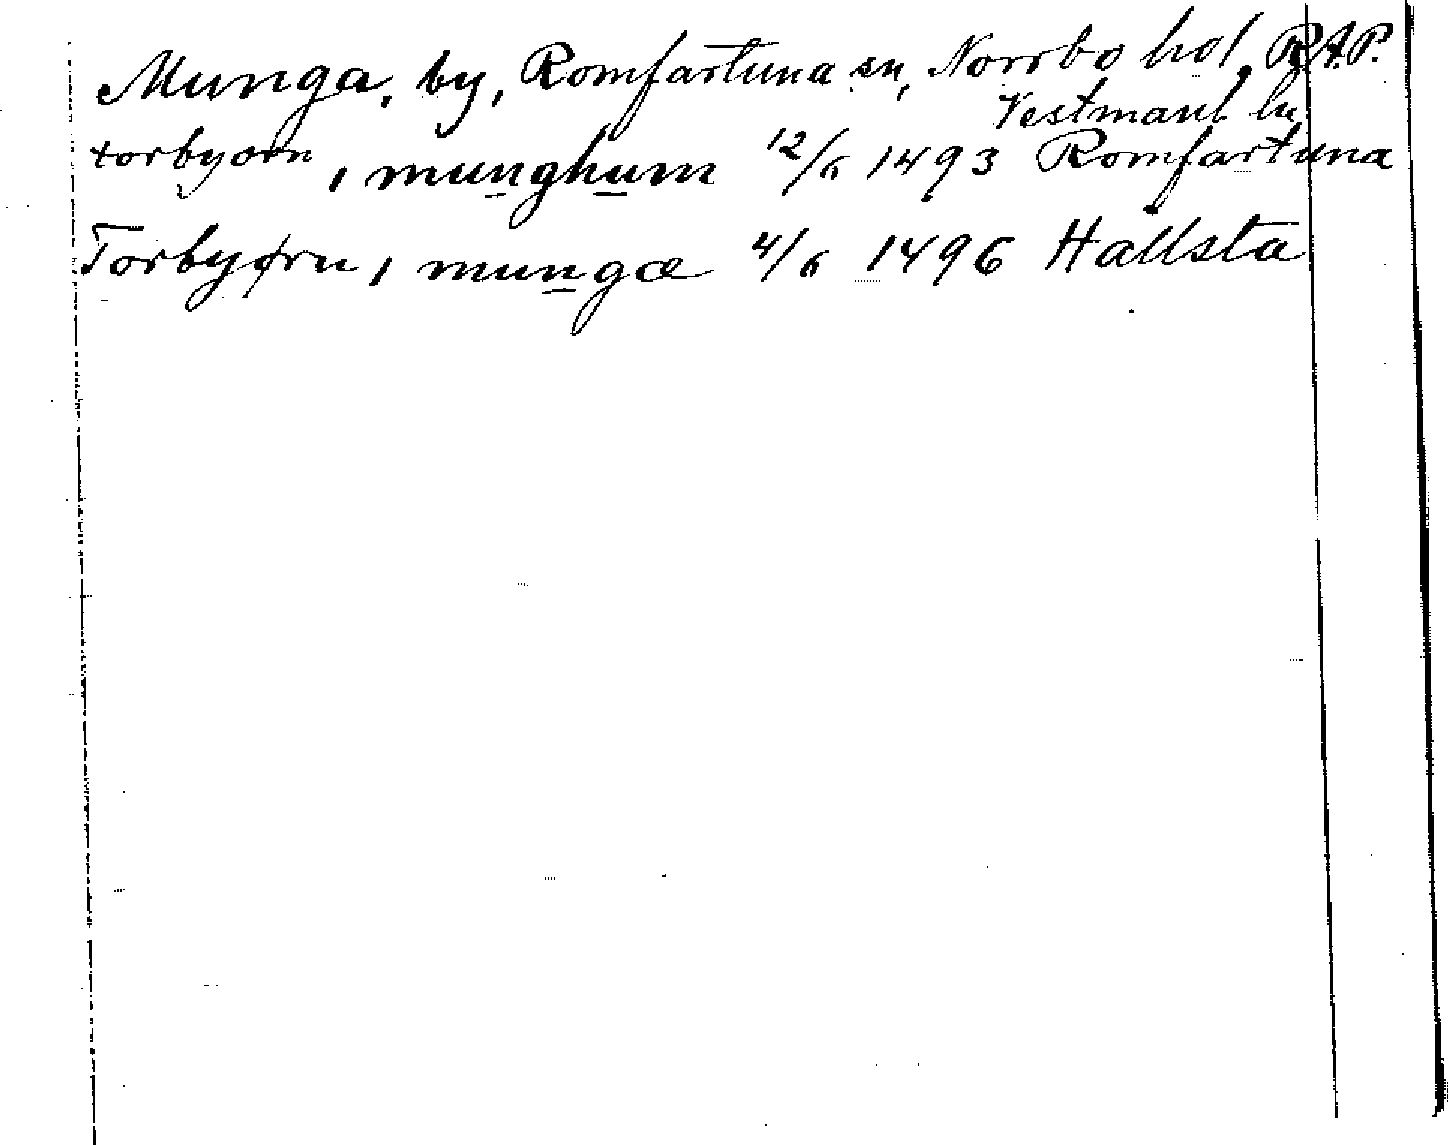 Munga, by, Romfartuna sn, Norrbo hd, RAP.
Vestmanl. ln
torbyorn, i munghum 12/6 1493 Romfartuna
Torbyørn, i mungæ 4/6 1496 Hallsta